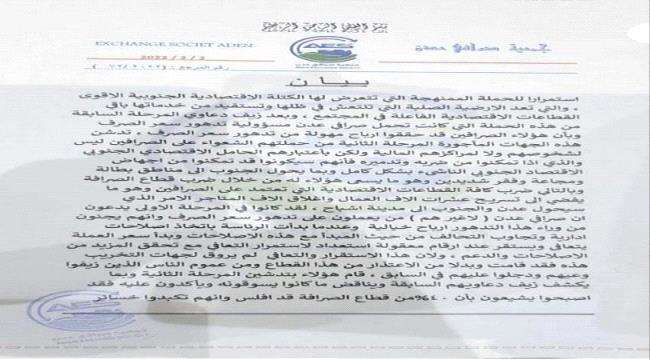 EXCHANGE SOCIET ADEN
AES
جمعية صرافي عدن
2022 / 2 / 2
رقم المرجع :
بيان
استمرارا للحملة الممنهجة التي تتعرض لها الكتلة الاقتصادية الجنوبية الاقوى
، والتي تعد الارضية الصلبة التي تنتعش في ظلها وتستفيد من خدماتها باقي
القطاعات الاقتصادية الفاعلة في المجتمع ، وبعد زيف دعاوي المرحلة السابقة
من هذه الحملة التي كانت تحمل صرافي عدن مسؤولية تدهور سعر الصرف
وبأن هؤلاء الصرافين قد حققوا ارباح مهولة من تدهور سعر الصرف ، تدشن
هذه الجهات المأجورة المرحلة الثانية من حملتهم الشعواء على الصرافين ليس
لشخوصهم ولا لمراكزهم المالية ولكن باعتبارهم الحامل الاقتصادي الجنوبي
والذي اذا تمكنوا من ضربه وتدميره فأنهم سيكونوا قد تمكنوا من اجهاض
الاقتصاد الجنوبي الناشئ بشكل كامل وبما يحول الجنوب الى مناطق بطالة
ومجاعة وفقر شديدين وهو ما يسعى هؤلاء له من خلال ضرب قطاع الصرافة
وبالتالي ضرب كافة القطاعات الاقتصادية التي تعتمد على الصرافين وهو ما
يفضي الى تسريح عشرات الاف العمال واغلاق الاف المتاجر الامر الذي
سيحول عدن والجنوب الى مدينة اشباح ، لقد كانوا في المرحلة الاولى يدعون
ان صرافي عدن ( لاغير هم ) من يعملون على تدهور سعر الصرف وانهم يجنون
من وراء هذا التدهور ارباح خيالية وعندما بدأت الرئاسة باتخاذ اصلاحات
ادارية وتجاوب التحالف من حيث المبدأ مع هذه الاصلاحات وبدأ سعر العملة
يتعافى ويستقر عند ارقام معقولة استعداد لاستمرار التعافي مع تحقق المزيد من
الاصلاحات والدعم ، ولان هذا الاستقرار والتعافي لم يروق لجهات التخريب
هذه فقد قامت وبدلا من الاعتذار من هذا القطاع ومن عموم الناس الذين زيفوا
وعيهم ودجلوا عليهم في السابق ، قام هؤلاء بتدشين المرحلة الثانية وبما
يكشف زيف دعاويهم السابقة ويناقض ما كانوا يسوقونه ويأكدون عليه فقد
اصبحوا يشيعون بأن ٤٠% من قطاع الصرافة قد افلس وانهم تكبدوا خسائر